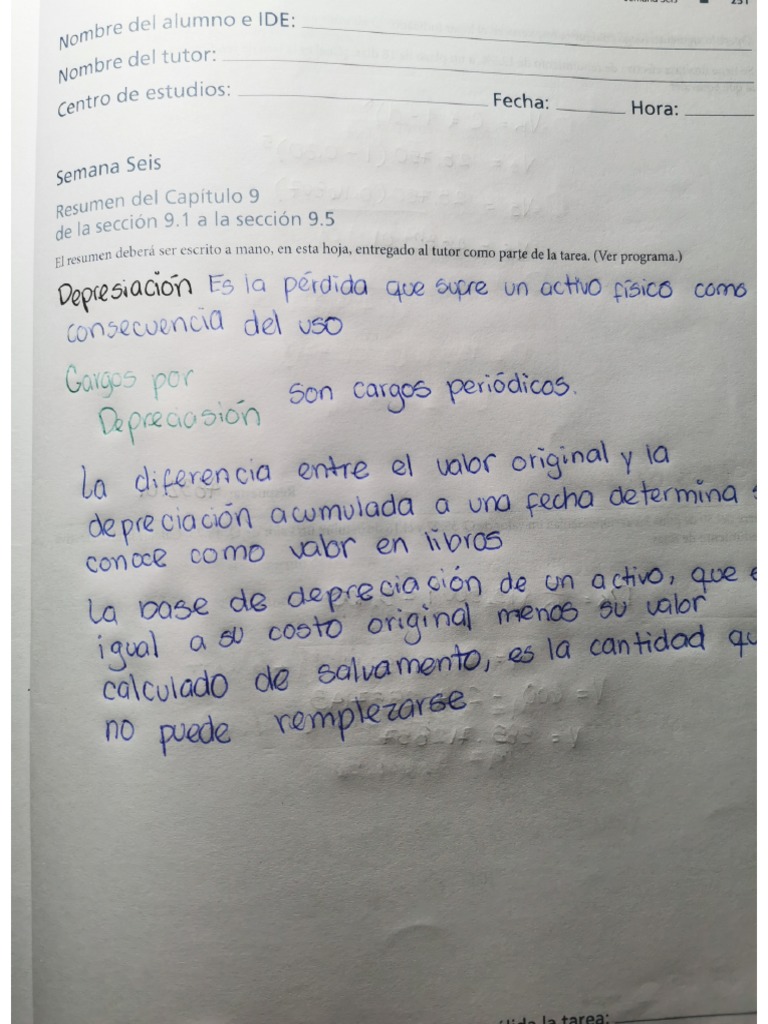 231
Nombre del alumno e IDE:
Nombre del tutor:
Centro de estudios: Fecha: Hora:
Semana Seis
Resumen del Capítulo 9
de la sección 9.1 a la sección 9.5
El resumen deberá ser escrito a mano, en esta hoja, entregado al tutor como parte de la tarea. (Ver programa.)
Depresiación Es la pérdida que sufre un activo físico como
consecuencia del uso
Cargos por
Depreciasión son cargos periódicos.
La diferencia entre el valor original y la
depreciación acumulada a una fecha determina
conoce como valor en libros
La base de depreciación de un activo, que
igual a su costo original menos su valor
calculado de salvamento, es la cantidad qu
no puede remplezarse
la tarea: